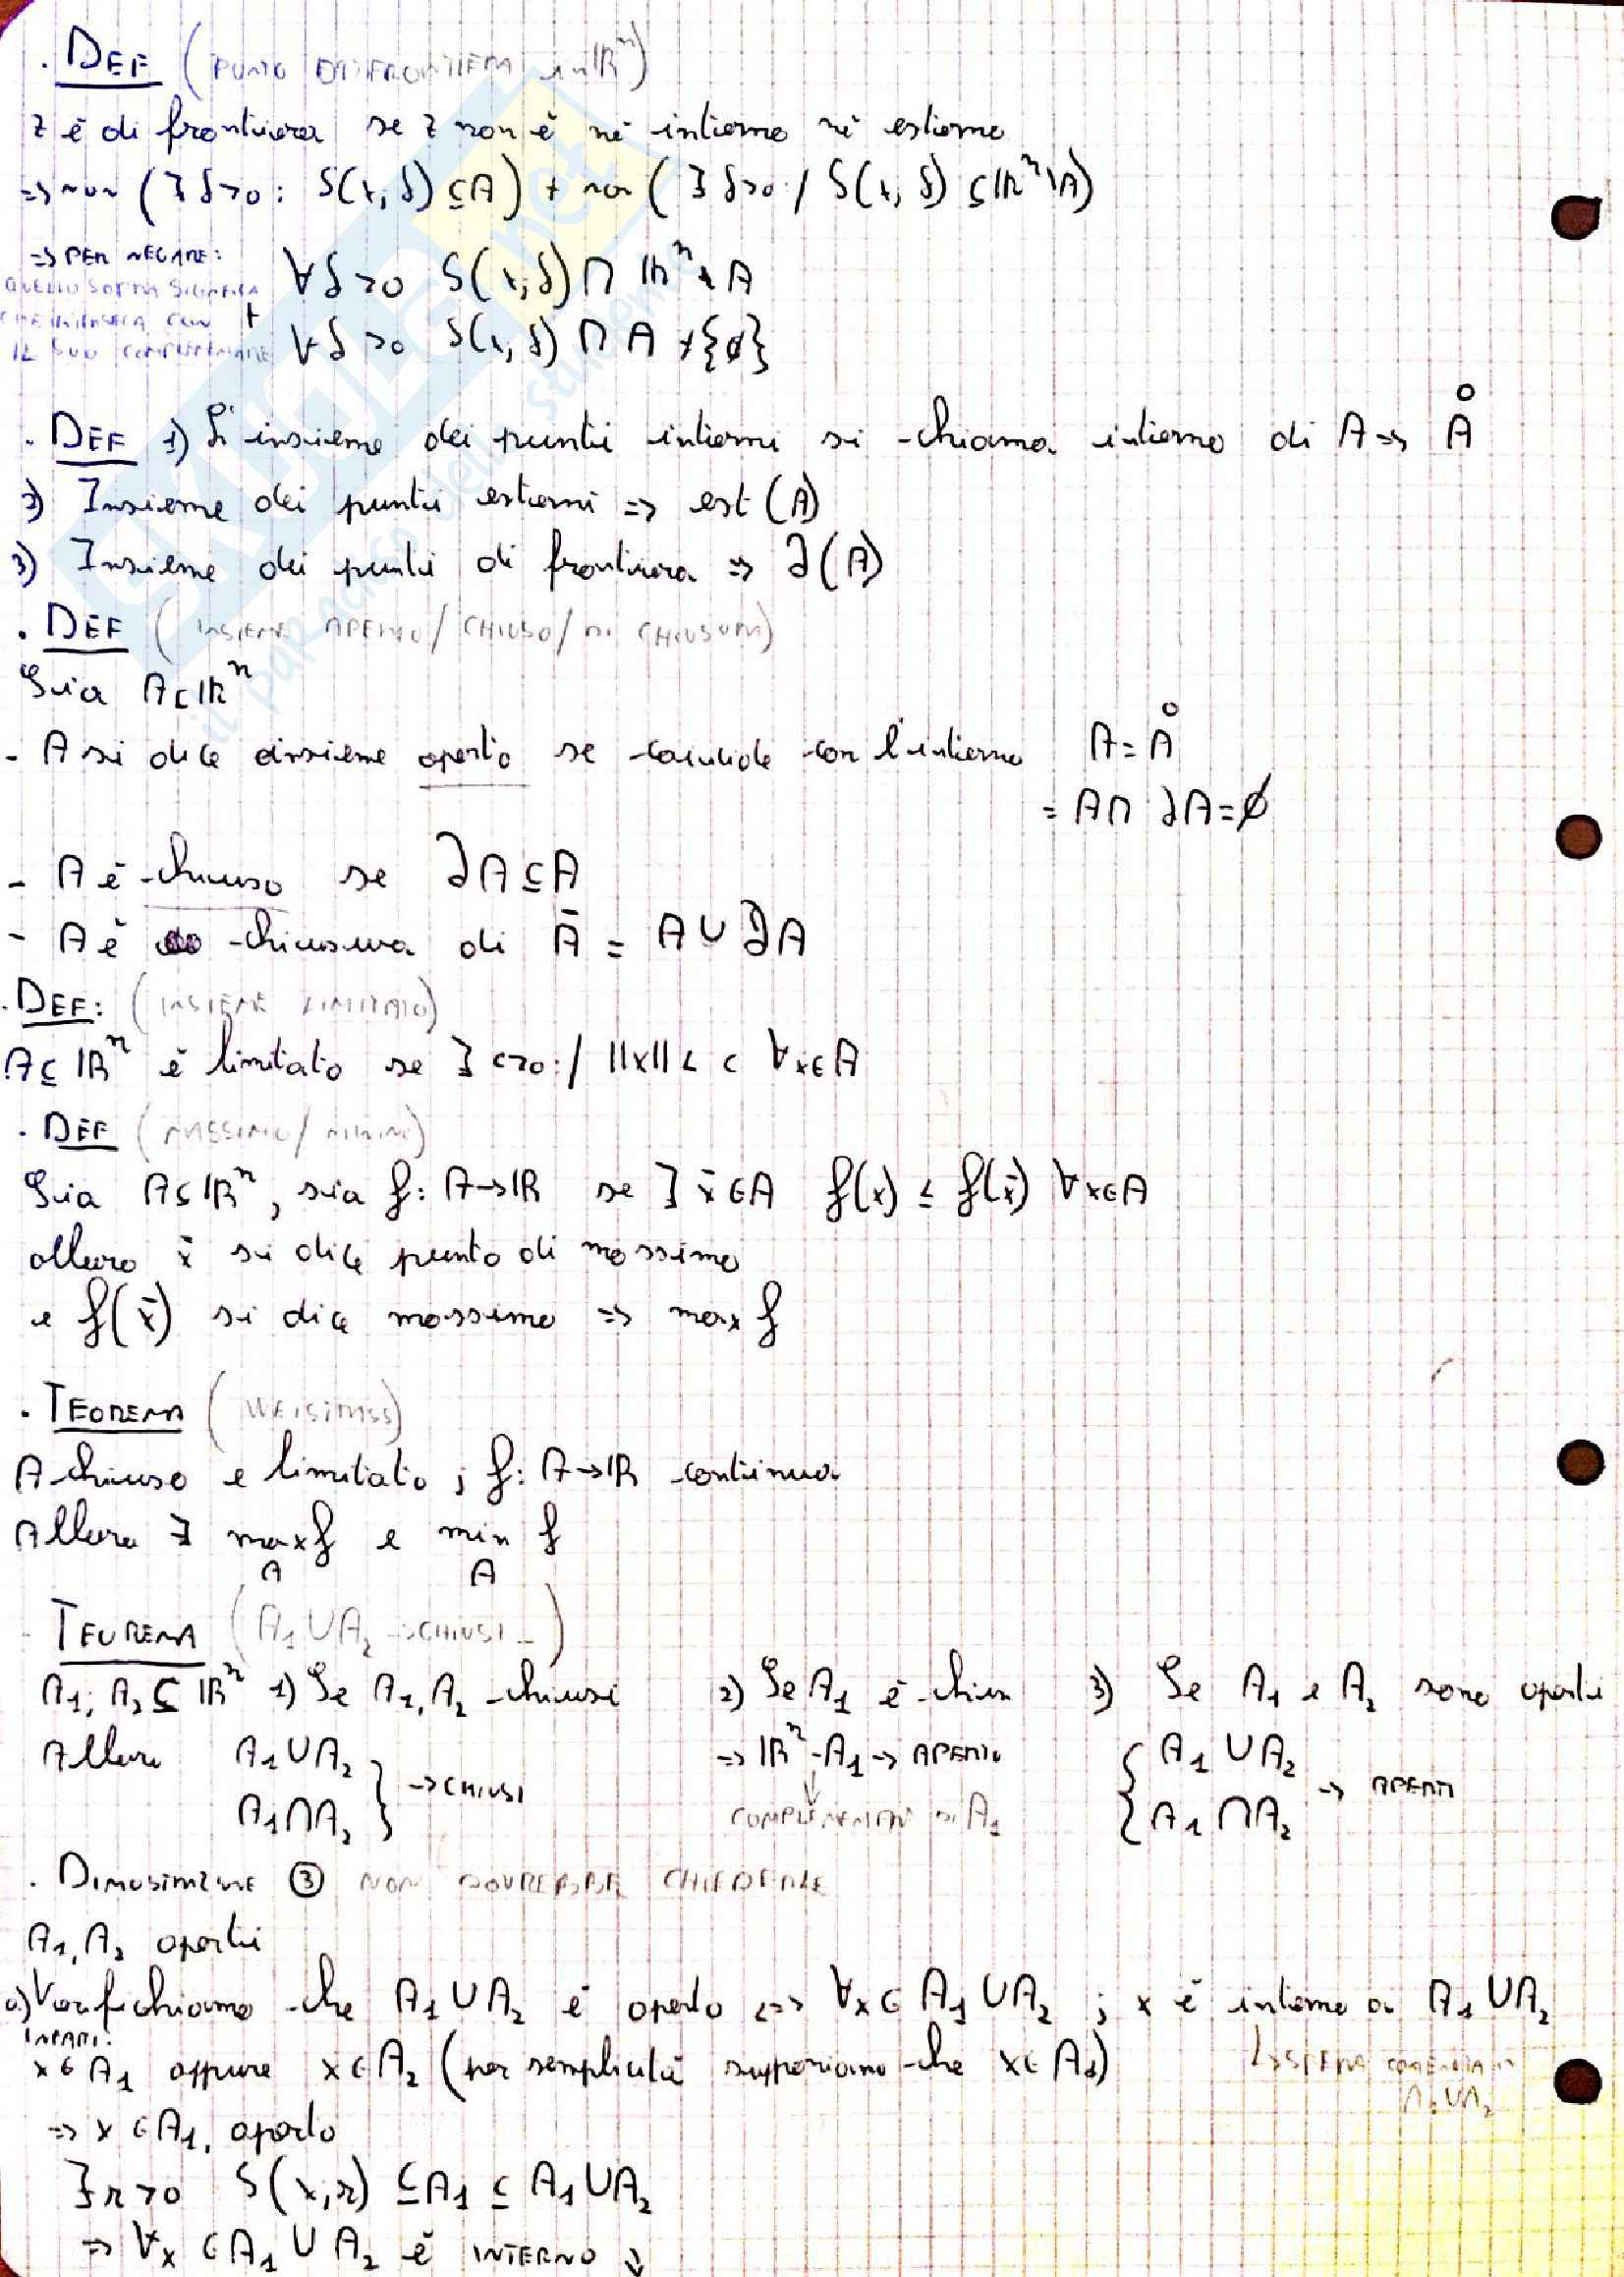 . DEF (PUNTO DI FRONTIERA in ℝⁿ)
z è di frontiera se z non è nè interno nè esterno
=> non (∃ δ>0 : S(x, δ) ⊆ A) + non (∃ δ>0 / S(x, δ) ⊆ ℝⁿ\A)
=> PER NEGARE:
QUELLO SOPRA SIGNIFICA
CHE INTERSECA CON
IL SUO COMPLEMENTARE
∀δ>0 S(x, δ) ∩ ℝⁿ\A
+
∀δ>0 S(x, δ) ∩ A ≠ {ø}
. DEF 1) L'insieme dei punti interni si chiama interno di A => Å
2) Insieme dei punti esterni => est (A)
3) Insieme dei punti di frontiera => ∂(A)
. DEF (INSIEME APERTO / CHIUSO / DI CHIUSURA)
Sia A⊂ℝⁿ
- A si dice insieme aperto se coincide con l'interno A = Å
= A∩ ∂A = ø
- A è chiuso se ∂A ⊆ A
- A è chiusura di Ā = A ∪ ∂A
. DEF: (INSIEME LIMITATO)
A⊆ ℝⁿ è limitato se ∃ c>0 : / ||x|| < c ∀x∈A
. DEF (MASSIMO / MINIMO)
Sia A⊆ℝⁿ, sia f: A→ℝ se ∃ x̄ ∈A f(x) ≤ f(x̄) ∀x∈A
allora x̄ si dice punto di massimo
e f(x̄) si dice massimo => max f
. TEOREMA (WEISTRASS)
A chiuso e limitato ; f: A→ℝ continua
Allora ∃ max f e min f
A A
- TEOREMA (A₁∪A₂ →CHIUSI -)
A₁, A₂ ⊆ ℝⁿ 1) Se A₁, A₂ chiusi
Allora A₁∪A₂
A₁∩A₂ } → CHIUSI
2) Se A₁ è chiuso
=> ℝⁿ - A₁ → APERTO
↓
COMPLEMENTARE DI A₁
3) Se A₁ e A₂ sono aperti
{ A₁ ∪ A₂
A₁ ∩ A₂ → APERTI
. DIMOSTRAZIONE ③ NON DOVREBBE CHIEDERLE
A₁, A₂ aperti
a) Verifichiamo che A₁ ∪ A₂ è aperto <=> ∀x ∈ A₁ ∪ A₂ ; x è interno a A₁ ∪ A₂
INFATTI:
x ∈ A₁ oppure x ∈ A₂ (per semplicità supponiamo che x ∈ A₁)
↳ SFERA CONTENUTA in
A₁∪A₂
=> x ∈ A₁, aperto
∃ r>0 S(x, r) ⊆ A₁ ⊆ A₁∪A₂
=> ∀x ∈ A₁ ∪ A₂ è INTERNO ↓